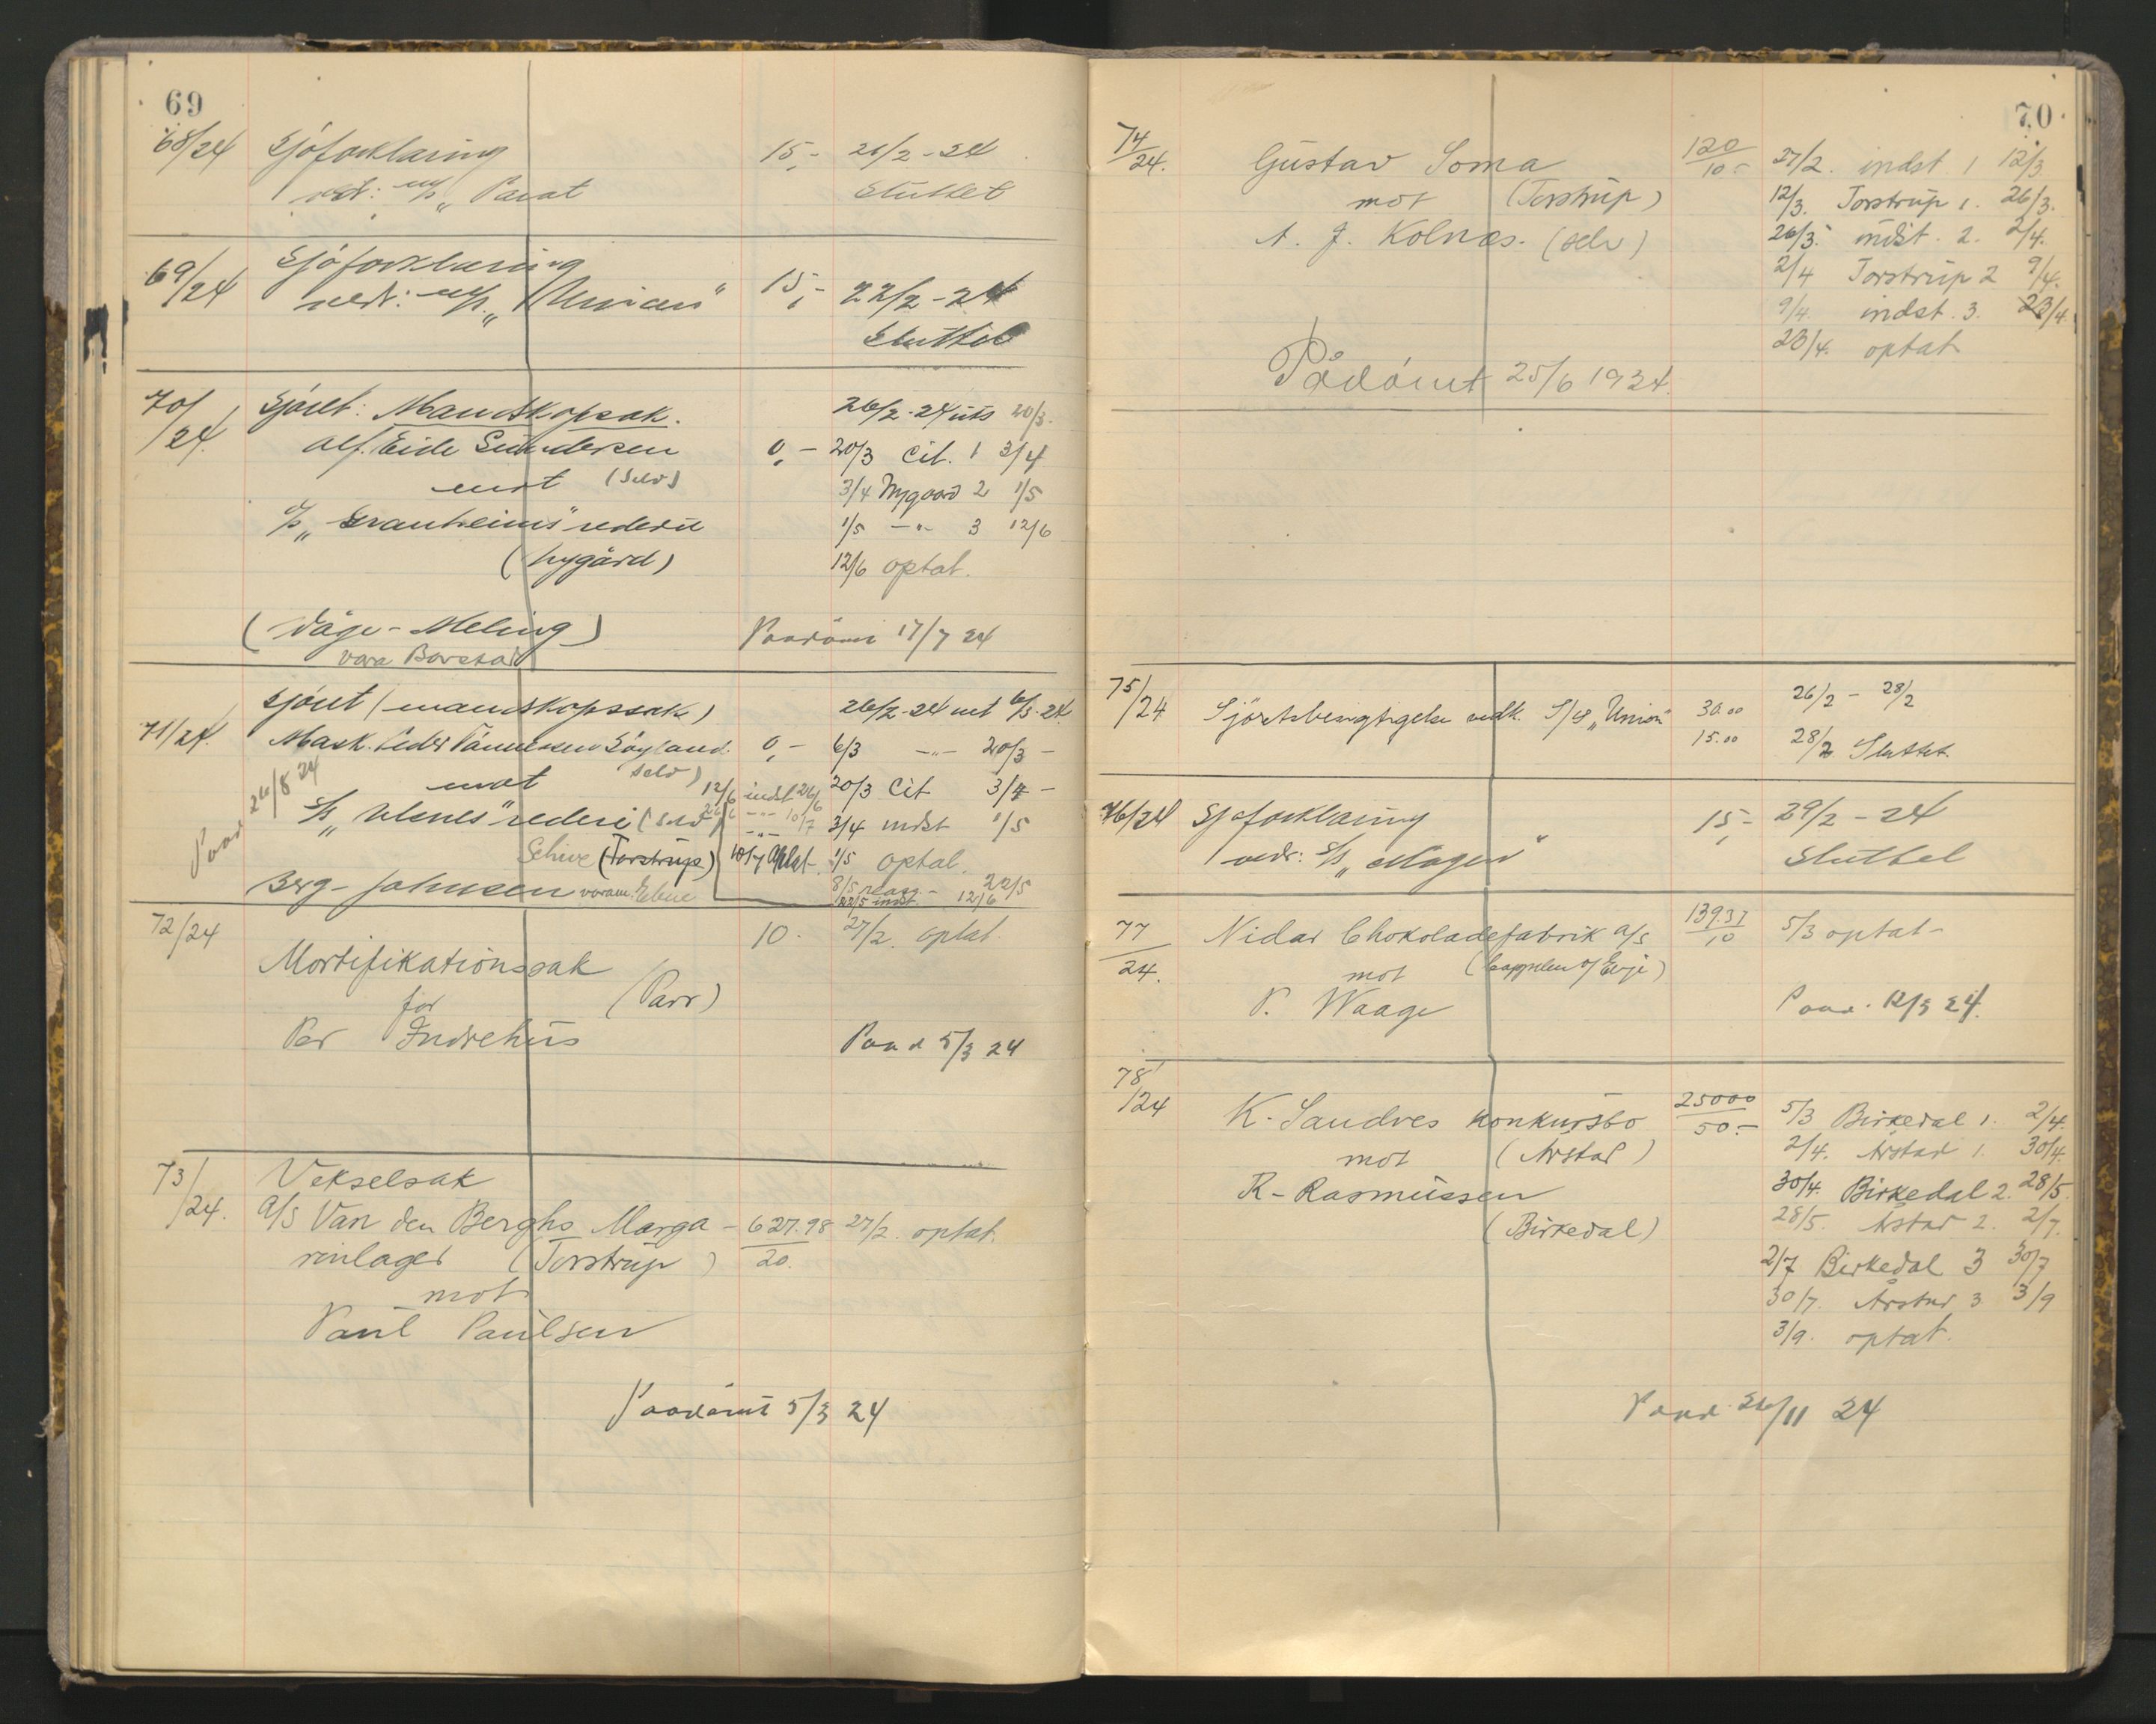 69
68/24 Sjöforklaring 15,- 26/2-24
vedr: m/s „Parat Sluttet
69/24 Sjöforklaring 15,- 22/2-24
vedr: m/s „Unicus" Sluttet
70/24. Sjöret: Mandskapsak. 26/2-24 uts 20/3.
Alf. Eide Gundersen 0,- 20/3 Cit. 1 3/4
mot (selv) 3/4 Nygaard 2 1/5
"Granheims" rederie 1/5 -"- 3 12/6
(Nygård) 12/6 optat.
(Våge - Meling) Paadömt 17/7 24
vara Børstad
71/24. Sjöret (mandskapssak) 26/2-24 uts 6/3-24.
Mask. Peder Tönnessen Göyland. 0,- 6/3 -"- 20/3 -
mot selv) 12/6 indst 26/6 20/3 Cit 3/4 -
S/S „Ulsnes" rederi (selv) 26/6 -"- 10/7 3/4 indst 1/5
Paad 26/8 24
Schive (Torstrup) 10/7 optat. 1/5 optat.
8/5 reass. - 22/5
Berg - Johnsen varam. 22/5 indst. 12/6
72/24 10. 27/2. optat.
Mortifikationssak
for (Parr)
Per Indrehus Paad 5/3 24
73/24. Vekselsak
A/S Van den Berghs Marga- 627.98 27/2. optat.
rinlager (Torstrup) 20.
mot
Paul Paulsen
Paadömt 5/3 24
70
74/24. Gustav Soma 120/10- 27/2. indst. 1 12/3
mot (Torstrup) 12/3. Torstrup 1. 26/3.
A. J. Kolnes. (selv) 26/3. indst. 2. 2/4.
2/4 Torstrup 2 9/4.
9/4. indst. 3. 23/4.
23/4. optat
Pådömt 25/6 1924.
75/24 Sjöretsbesigtigelse vedk. S/S „Union" 30.00 26/2 - 28/2
15.00 28/2 Sluttet.
76/24 Sjøforklaring 15,- 29/2-24
vedr: S/S „Mogen" Sluttet
77/24. Nidar Chokoladefabrik A/S 139.37/10 5/3 optat-
mot (Cappelen o/ Evje)
P. Waage Paad. 12/3 24.
78/24 K. Sandves konkursbo 25000/50.- 5/3 Birkedal 1. 2/4.
mot (Årstad) 2/4. Årstad 1. 30/4.
R. Rasmussen 30/4. Birkedal 2. 28/5.
(Birkedal) 28/5. Årstad 2. 2/7.
2/7 Birkedal 3 30/7
30/7. Årstad 3 3/9
3/9. optat.
Paad. 26/11 24